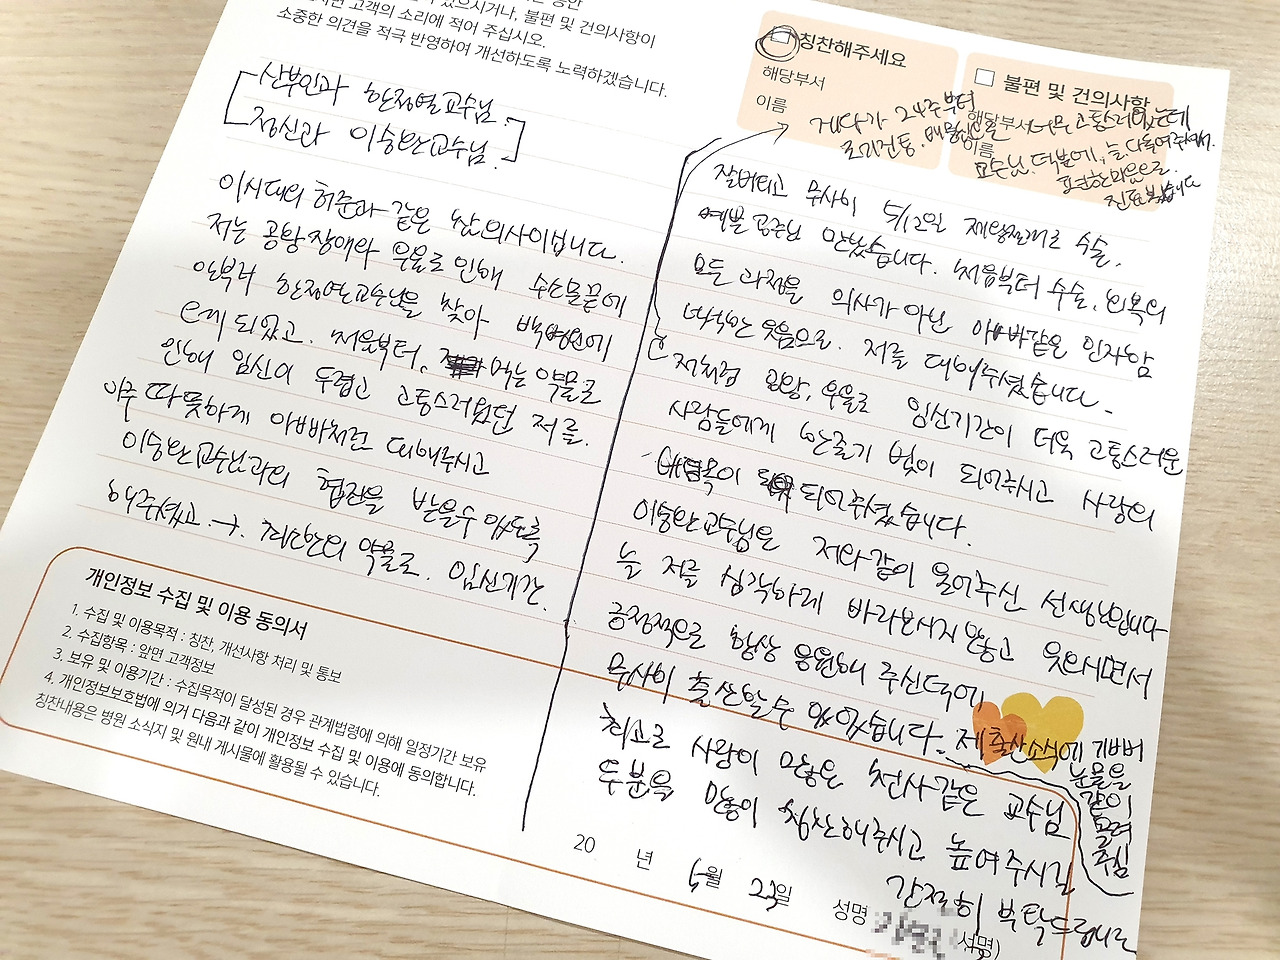 있으시거나, 불편 및 건의사항이
고객의 소리에 적어 주십시오.
소중한 의견을 적극 반영하여 개선하도록 노력하겠습니다.
칭찬해주세요
해당부서
이름
불편 및 건의사항
해당부서
이름
산부인과 한정열교수님.
정신과 이승환교수님.
이시대의 허준과 같은 참 의사이십니다.
저는 공황장애와 우울로 인해 수소문끝에
한정열교수님을 찾아 백병원에
오게 되었고. 처음부터. 먹는 약물로
인해 임신이 두렵고 고통스러웠던 저를.
아주 따뜻하게 아빠처럼 대해주시고
이승환교수님과의 협진을 받을수 있도록
해주셨고 → 최소한의 약물로. 임신기간.
게다가 24주부터
조기진통. 너무 고통스러웠는데
교수님 덕분에, 늘 다독여주셔서.
편한마음으로
진료 봤습니다
잘버티고 무사히 5/12일 제왕절개로 수술.
예쁜 공주님 만났습니다. 처음부터 수술, 회복의
모든 과정을 의사가 아닌 아빠같은 인자함
넉넉한 웃음으로. 저를 대해주셨습니다.
저처럼 공황, 우울로 임신기간이 더욱 고통스러운
사람들에게 한줄기 빛이 되어주시고 사랑의
버팀목이 되어주셨습니다.
이승환교수님은 저와같이 울어주신 선생님입니다
늘 저를 심각하게 바라보시지 않고 웃으시면서
긍정적으로 항상 응원해 주신덕에
무사히 출산할수 있었습니다. 제 출산소식에 기뻐서
눈물을
같이
흘려
주심
최고로 사랑이 많은 천사같은 교수님
두분을 많이 칭찬해주시고 높여주시길
간절히 부탁드립니다
20 년 5월 23일 성명
개인정보 수집 및 이용 동의서
1. 수집 및 이용목적 : 칭찬, 개선사항 처리 및 통보
2. 수집항목 : 앞면 고객정보
3. 보유 및 이용기간 : 수집목적이 달성된 경우 관계법령에 의해 일정기간 보유
4. 개인정보보호법에 의거 다음과 같이 개인정보 수집 및 이용에 동의합니다.
칭찬내용은 병원 소식지 및 원내 게시물에 활용될 수 있습니다.